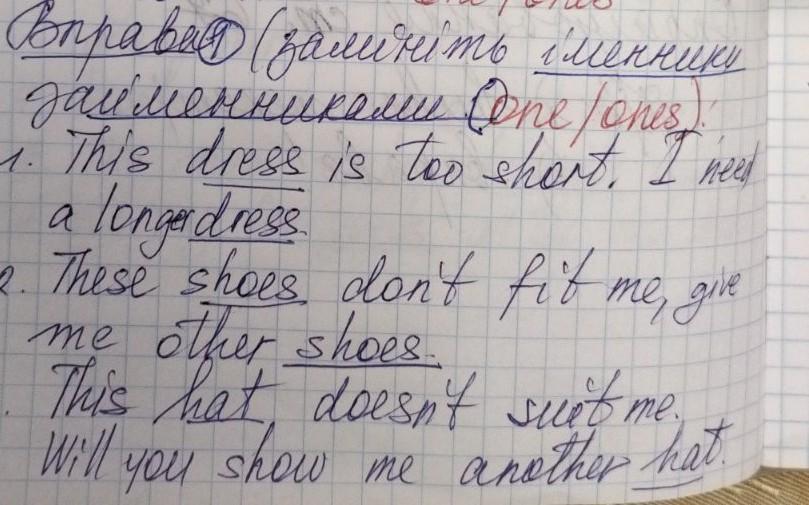 Вправа 1 (замініть іменники
займенниками (one/ones):
1. This dress is too short. I need
a longer dress.
2. These shoes don't fit me, give
me other shoes.
. This hat doesn't suit me.
Will you show me another hat.